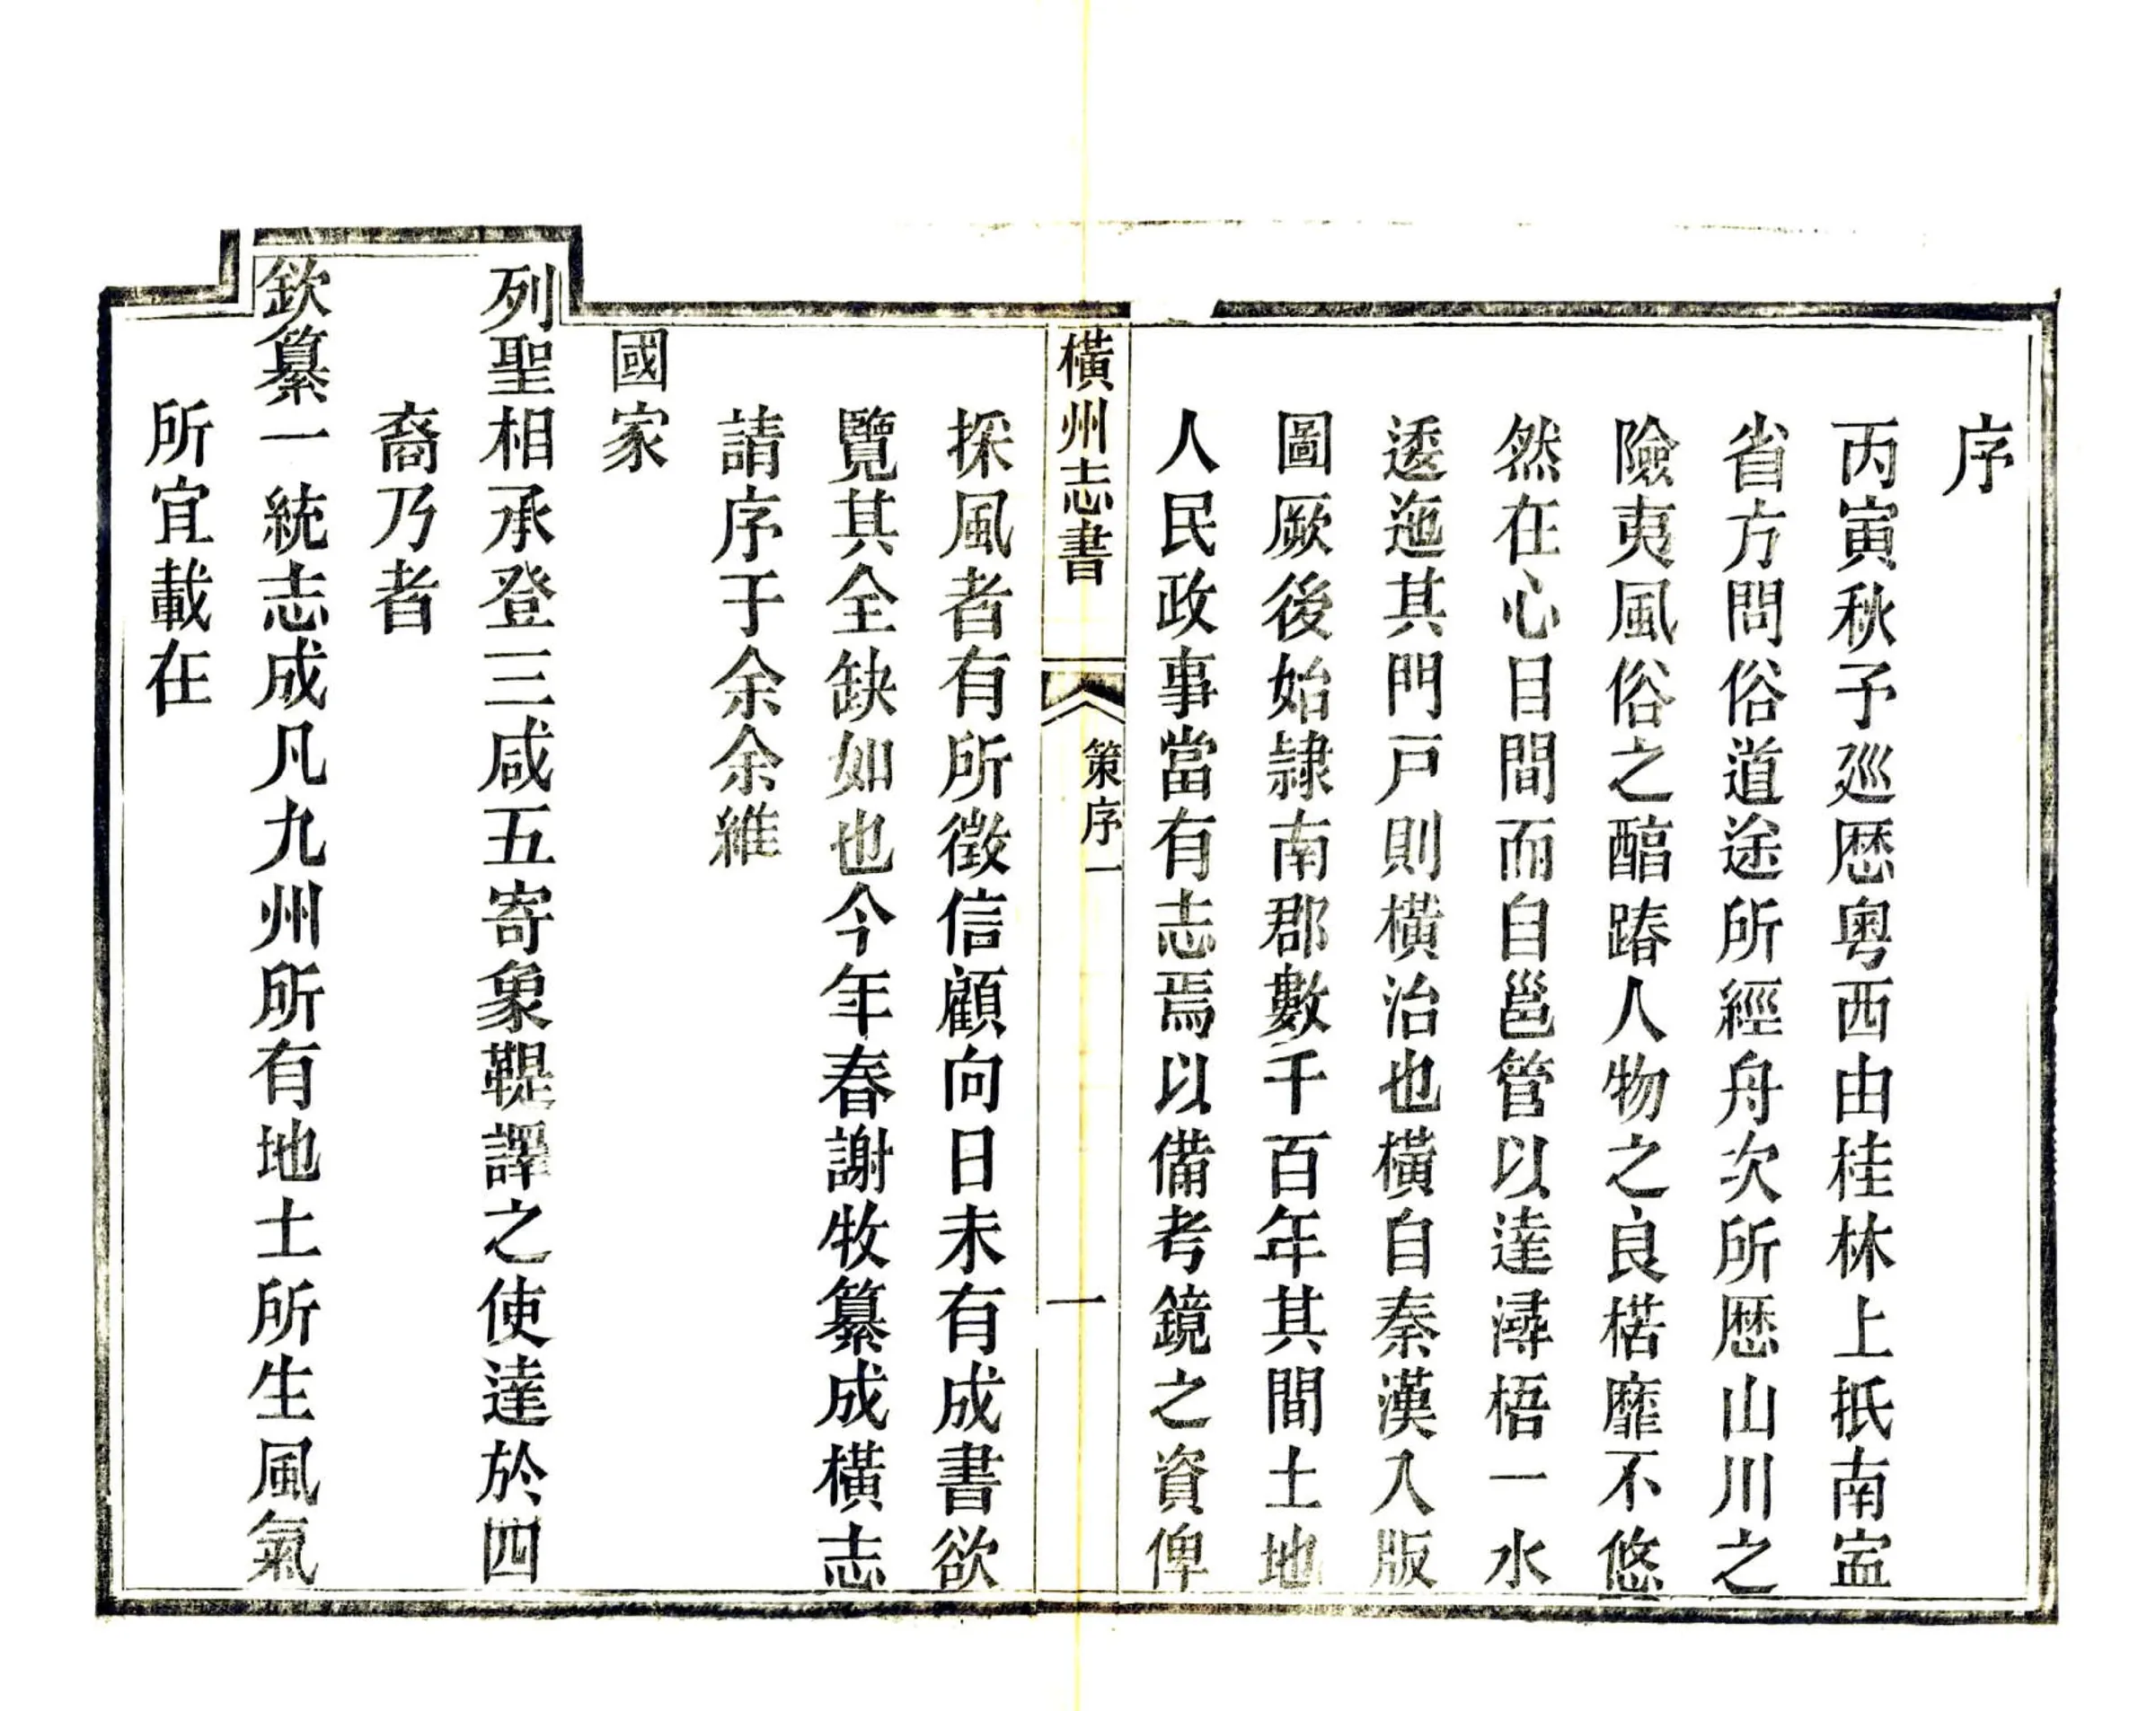 序
丙寅秋予廵厯粤西由桂林上抵南寍
省方問俗道途所經舟次所厯山川之
險夷風俗之醕蹖人物之良楛靡不悠
然在心目間而自邕管以達潯梧一水
逶迤其門戸則橫治也橫自秦漢入版
圖厥後始隷南郡數千百年其間土地
人民政事當有志焉以備考鏡之資俾
橫州志書
策序一
一
採風者有所徵信顧向日未有成書欲
覽其全缺如也今年春謝牧纂成橫志
請序于余余維
國家
列聖相承登三咸五寄象鞮譯之使達於四
裔乃者
欽纂一統志成凡九州所有地土所生風氣
所宜載在